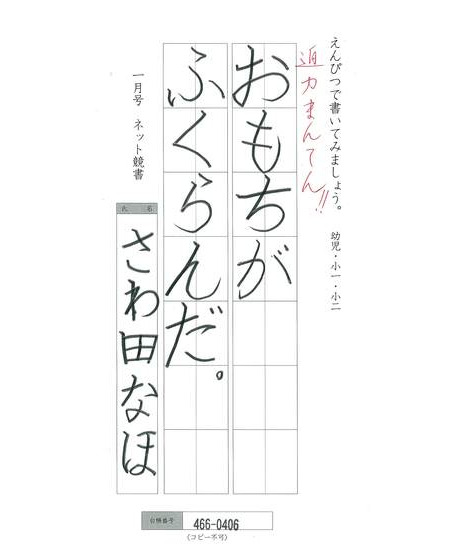 えんぴつで書いてみましょう。　幼児・小一・小二
迫力まんてん!!
おもちが
ふくらんだ。
一月号　ネット競書
氏名
さわ田なほ
台帳番号 466-0406
(コピー不可)